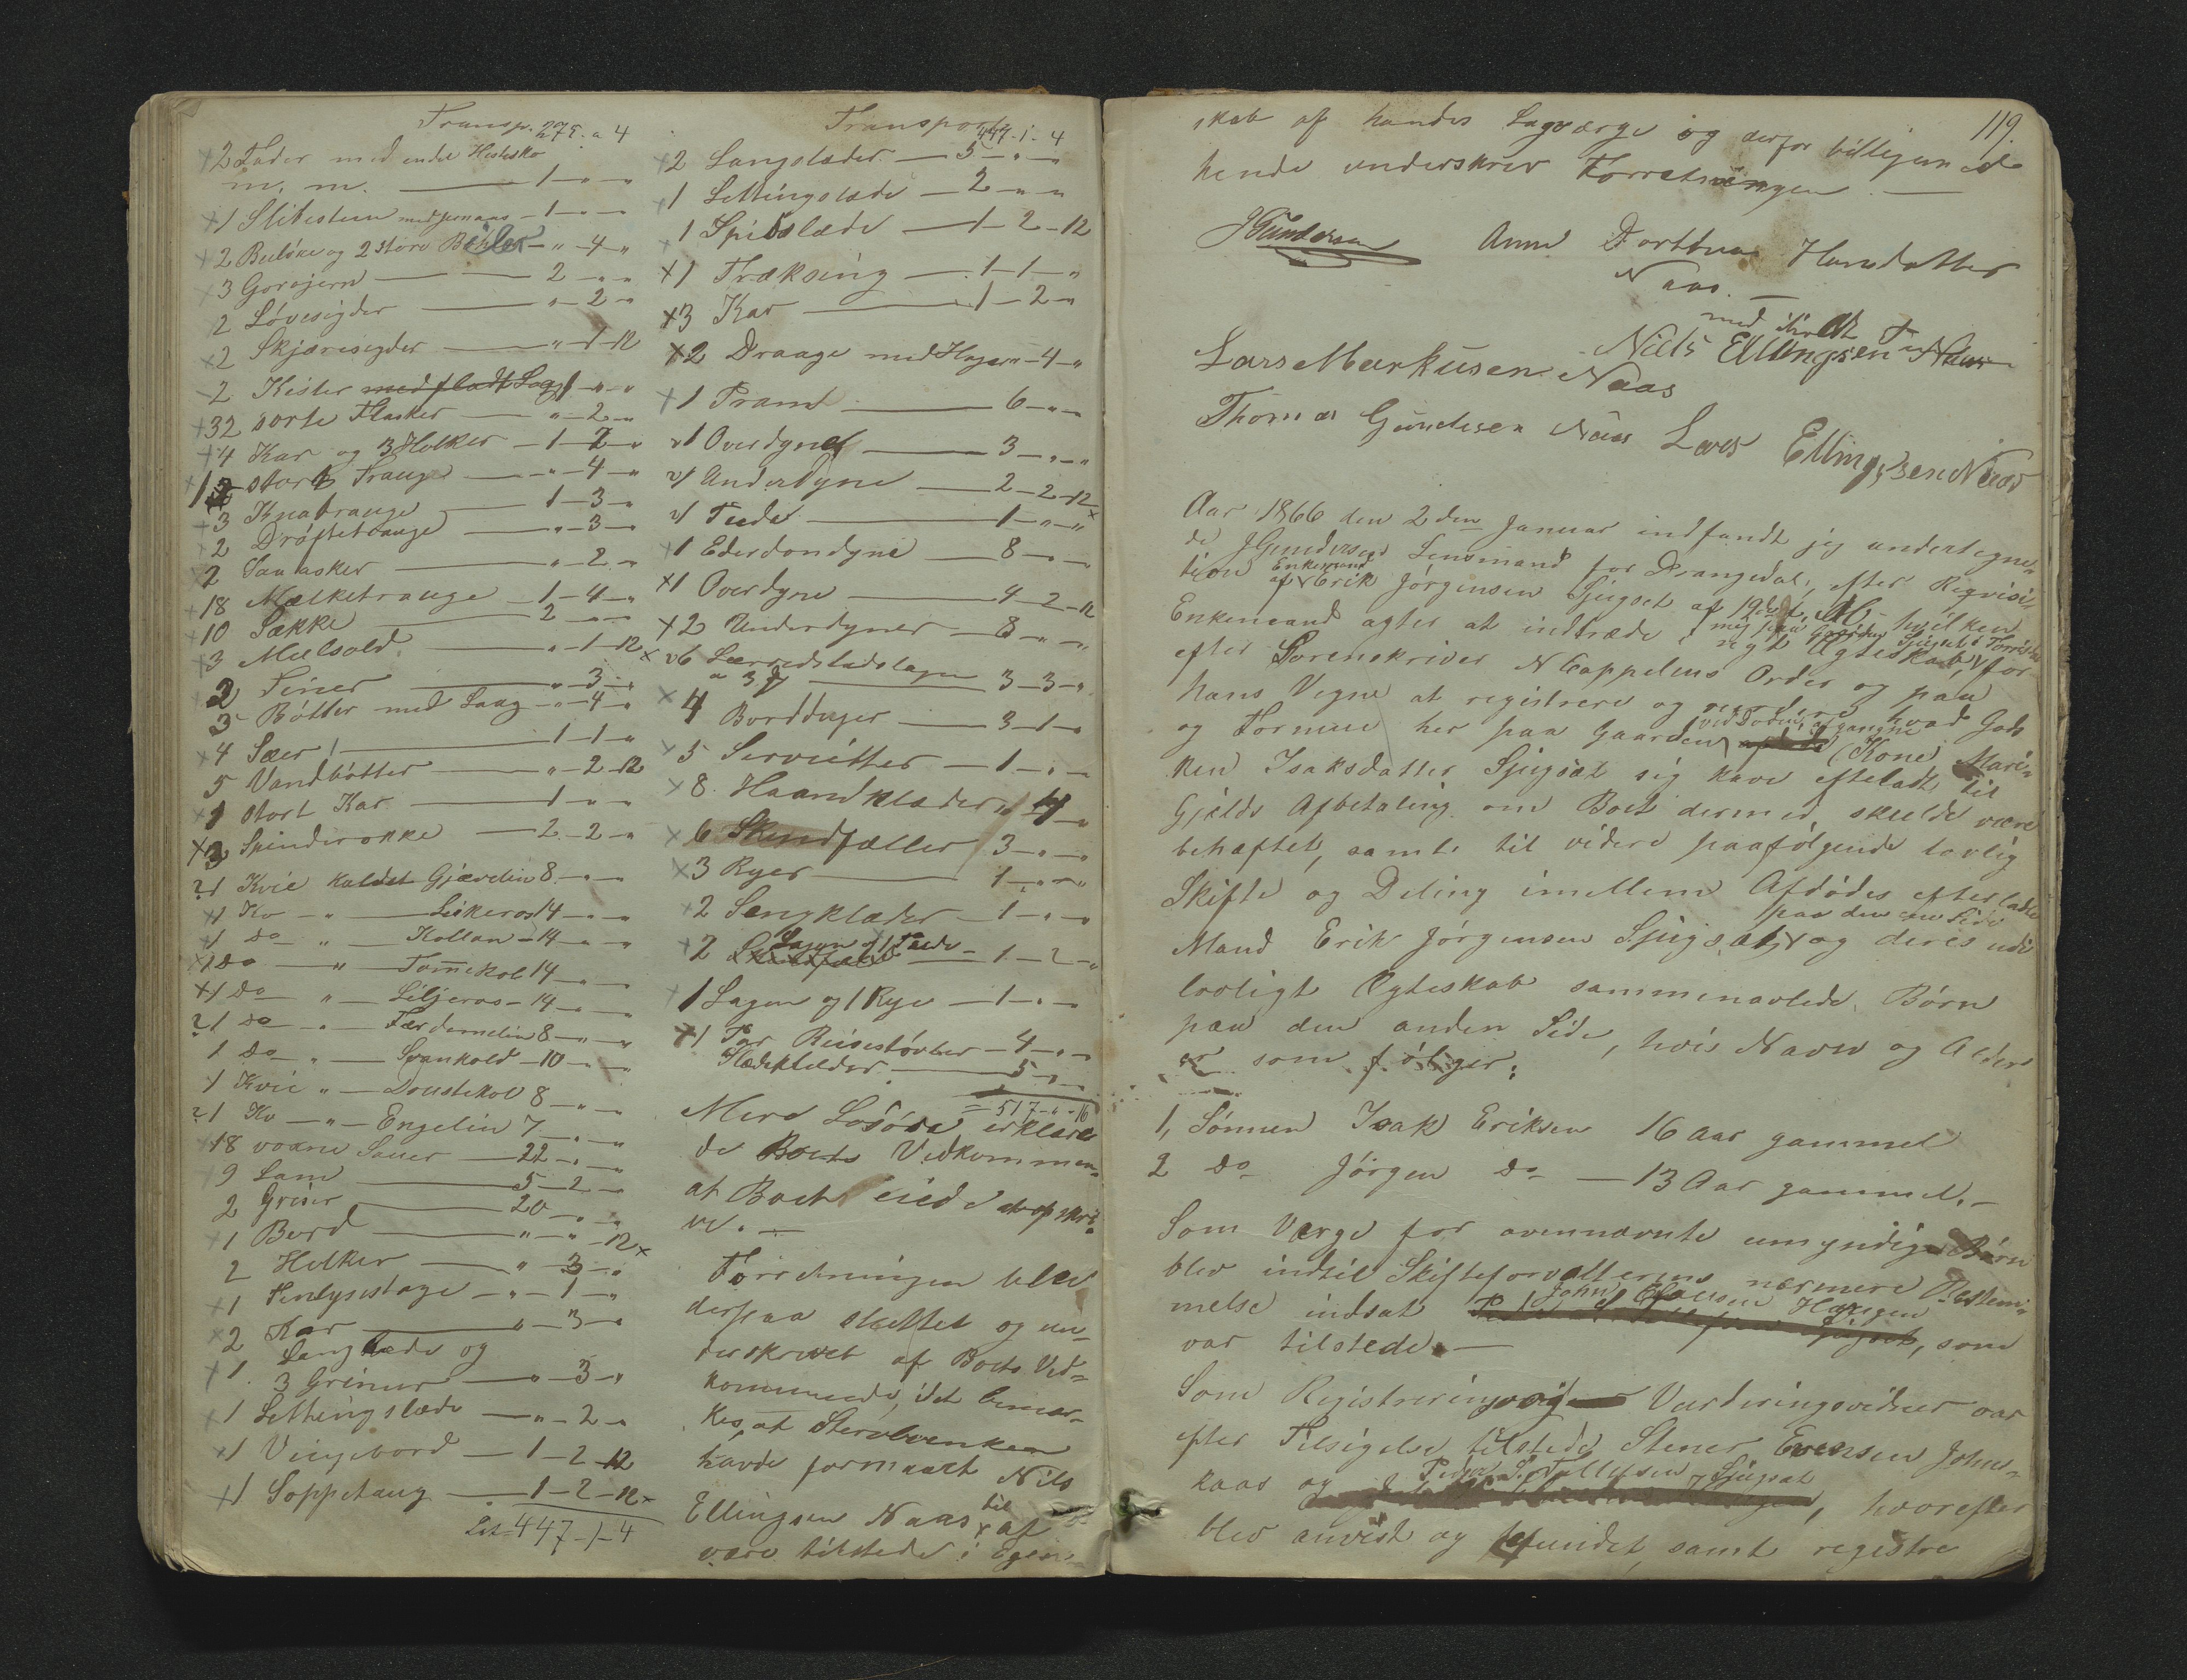 Transp. 275 " 4
2 Fader med endel Hestesko
m. m. — 1 - " - "
1 Slibesteen med Jernaas - 1 - " - "
2 Bulöxe og 2 store Böhler - " - 4 - "
3 Gorojern — 2 - " - "
2 Lövesigder — " - 2 - "
2 Skjæresigder — " - 1 - 12
2 Kister med fladt Laag 1 - " - "
32 sorte Flasker — " - 2 - "
4 Kar og 3 Holker - 1 - 2 - "
1 stort Traug — " - 4 - "
3 Knatrauge — 1 - 3 - "
2 Dröftetrauge — " - 3 - "
2 Saaasker — " - 2 - "
18 Melketrauge - 1 - 4 - "
10 Sække — 2 - " - "
3 Meelsold — " - 1 - 12
2 Tiner — " - 3 - "
3 Bötter med Laag - " - 4 - "
4 Sæer — 1 - 1 - "
5 Vandbötter — " - 2 - 12
1 stort Kar — 1 - " - "
3 Spinderokke — 2 - 2 - "
1 Kvie kaldet Gjævelin 8 - " - "
1 Ko - " - Leikeros 14 - " - "
1 do " - Kollan - 14 - " - "
1 do - " - Tommekol 14 - " - "
1 do " - Liljeros - 14 - " - "
1 do - " - Færdemelin 8 - " - "
1 do " - Svankold - 10 - " - "
1 Kvie " - Doustekol 8 - " - "
1 Ko - " - Engelin 7 - " - "
18 voxne Sauer - 22 - " - "
9 Lam — 5 - 2 - "
2 Griser — 20 - " - "
1 Bord — " - " - 12
2 Holker — " - 3 - "
1 Tenlysestage - " - 1 - "
2 Kar — " - 3 - "
1 Langslæde og
3 Grimer — " - 3 - "
1 Settingslæde - " - 2 - "
1 Vingebord - 1 - 2 - 12
1 Soppetaug - 1 - 2 - 12
Lat. 447 - 1 - 4
Transport 447 - 1 - 4
2 Langslæder — 5 - " - "
1 Settingslæde — 2 - " - "
1 Spidslæde — 1 - 2 - 12
1 Træksing — 1 - 1 - "
3 Kar — 1 - 2 - "
2 Draage med Hager " - 4 - "
1 Pram — 6 - " - "
1 Overdyne — 3 - " - "
1 Underdyne — 2 - 2 - 12
1 Pude — 1 - " - "
1 Ederdondyne — 8 - " - "
1 Overdyne — 4 - 2 - 12
2 Underdyner — 8 - " - "
6 Lærredsladslagen
a 3 — 3 - 3 - "
4 Bordduger — 3 - 1 - "
5 Servietter — 1 - " - "
8 Haandklæder " - 4 - "
6 Skindfæller 3 - " - "
3 Ryer — 1 - " - "
2 Sengklæder — 1 - " - "
Lagen og 1 Pude
2 — 1 - 2 - "
1 Lagen og 1 Rye - 1 - " - "
1 Par Reisestövler - 4 - " - "
— 5 - " - "
= 517 - " - 16
Mere Losöre erklære
de Boets Vedkommen-
at Boet eiede at opskri-
ve. —
Forretningen blev
derpaa sluttet og un-
derskrevet af Boets Ved-
kommende, idet bemær-
kes, at Stervboenken
havde formaaet Nils
Ellingsen Naas til at
være tilstede i Egen-
119.
skab af hendes Lagværge og derfor billigende
hende underskrev Forretningen. —
JGundersen Anne Dorthea Hansdatter
Naas. —
med ihold P
Niels Ellingsen Naas
Lars Markusen Naas
Thomas Gundersen Naas Lars Ellingsen Naas
Aar 1866 den 2den Januar indfandt jeg undertegne-
de JGundersen Lensmand for Drangedal, efter Reqvisi-
tion af Enkemand Erik Jörgensen Sjugset af 19de f. M. hvilken
Enkemand agter at indtræde i nyt Ægteskab, mig paa Gaarden Sjugset for
efter Sorenskriver N Cappelens Order og paa
hans Vegne at registrere og vurdere hvad Gods
og Formue her paa Gaarden ved Döden afgangne (Kone) Mari-
ken Isaksdatter Sjugsæt sig have efterladt til
Gjelds Afbetaling om Boet dermed skulde være
behæftet, samt til videre paafölgende lovlig
Skifte og Deling imellem Afdödes efterladte
Mand Erik Jörgensen Sjugsæt, paa den ene Side og deres udi
lovligt Ægteskab sammenavlede Börn
paa den anden Side, hvis Navne og Alder
er som fölger:
1, Sönnen Isak Eriksen 16 Aar gammel
2 do Jörgen do — 13 Aar gammel. —
Som Værge for ovennævnte umyndige Börn
blev indtil Skifteforvalterens nærmere Bestem-
melse indsat John Olausen Haugen, som
var tilstede. —
Som Registrerings og Vurderingsvidner var
efter Tilsigelse tilstede Stener Evensen Johns-
kaas og Peder S. Tollefsen Sjugsæt, hvorefter
blev anvist og befundet, samt registre